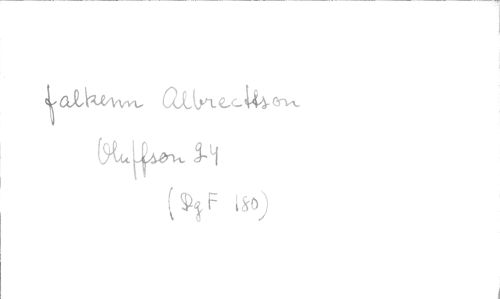 falkenn Albrecttson
Oluffson 24
(DgF 180)